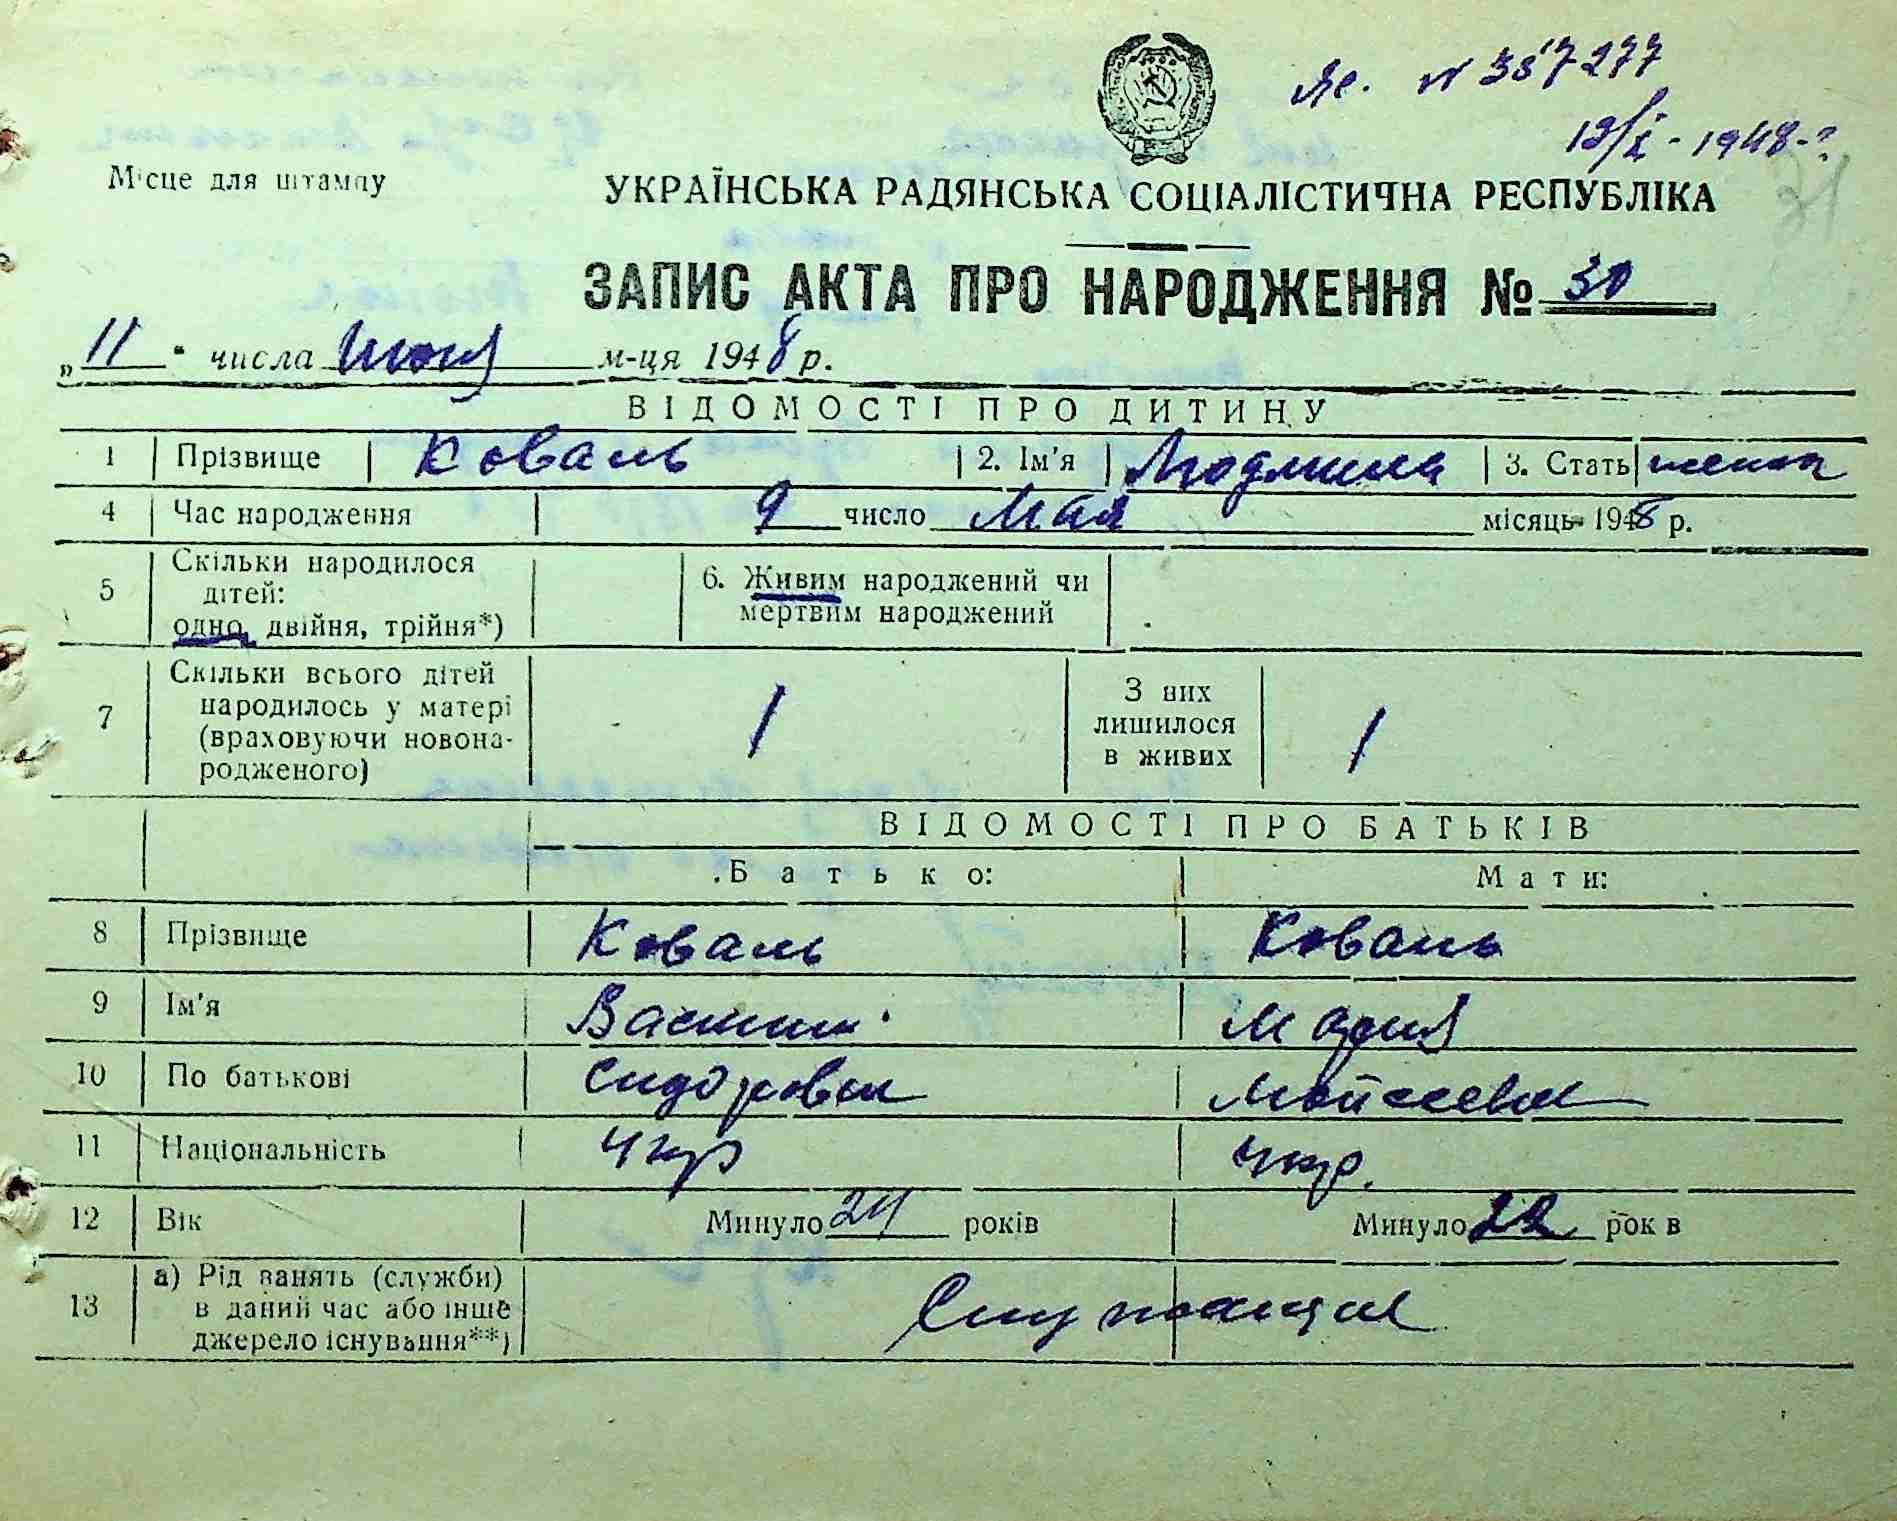 № 357277
1948
Місце для штампу
УКРАЇНСЬКА РАДЯНСЬКА СОЦІАЛІСТИЧНА РЕСПУБЛІКА
ЗАПИС АКТА ПРО НАРОДЖЕННЯ №
„11" числа июня м-ця 1948 р.
ВІДОМОСТІ ПРО ДИТИНУ
1 Прізвище Коваль 2. Ім'я Людмила 3. Стать женск
4 Час народження 9 число Мая місяць 1948 р.
5 Скільки народилося дітей: одно, двійня, трійня*) 6. Живим народжений чи мертвим народжений
7 Скільки всього дітей народилось у матері (враховуючи новонародженого) 1 З них лишилося в живих 1
ВІДОМОСТІ ПРО БАТЬКІВ
Батько: Мати:
8 Прізвище Коваль Коваль
9 Ім'я Василий Мария
10 По батькові Сидорович Мойсеевна
11 Національність Укр Укр.
12 Вік Минуло 24 років Минуло 22 років
13 а) Рід занять (служби) в даний час або інше джерело існування**) Служащие